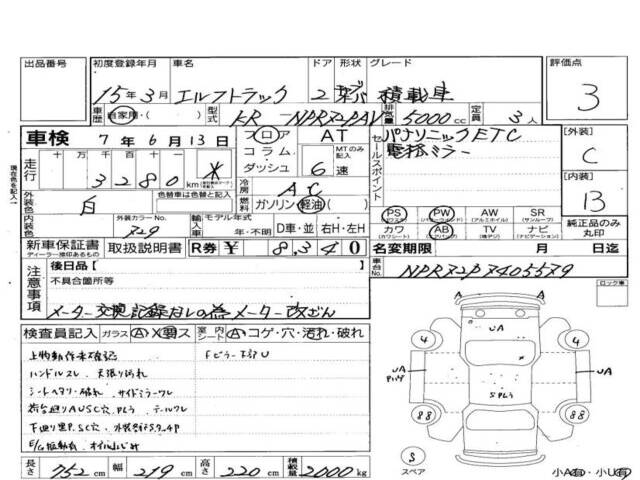 出品番号 初度登録年月 車名 ドア 形状 グレード 評価点
15年3月 エルフトラック 2 積載車 3
車歴 自家用・( ) 型式 KR-NPR72PAV 排気量 5000cc 定員 3人
車検 7年6月13日 フロア AT セールスポイント パナソニックETC 【外装】
走行 十万 万 千 百 十 一 コラム MTのみ記入 電格ミラー C
3280 * km ダッシュ 6速 【内装】
外装色 白 色替車は色替と記入 冷房 AC 13
燃料 ガソリン 軽油 ( ) PS PW AW SR 純正品のみ丸印
内装色 外装カラーNo. 729 輸入車 モデル年式 年・不明 D車・並 右H・左H カワ AB TV ナビ
新車保証書 取扱説明書 R券 ¥ 8,340 名変期限 月 日迄
ディーラー捺印あるもの
注意事項 後日品 【 】 車台No. NPR72P7405579
不具合箇所等 ロック車
メーター交換記録なしの為メーター改ざん
検査員記入 ガラス A・X・要ス 室内シート A・コゲ・穴・汚れ・破れ
上物動作未確認 Fピラー下部U
ハンドルスレ 天張り汚れ
シートヘタリ・破れ サイドミラーワレ
荷台廻りAUSC穴 テールワレ
E/G
A A
UA
4 4
UA UA
SPL
88 88
S
スペア
長さ 752cm 幅 219cm 高さ 220cm 積載量 2000kg 小A有・小U有